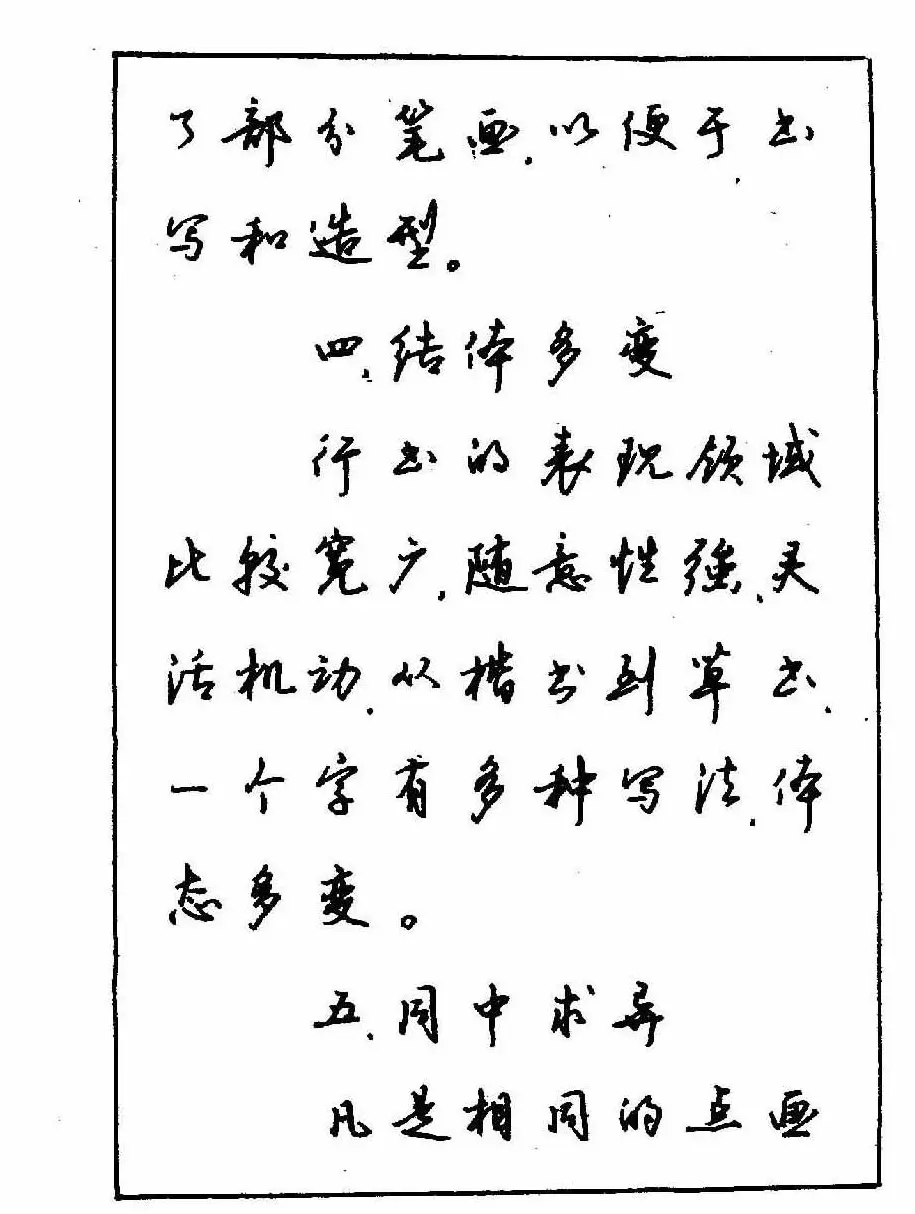 了部分笔画,以便于书
写和造型。
四、结体多变
行书的表现领域
比较宽广,随意性强、灵
活机动,从楷书到草书、
一个字有多种写法,体
态多变。
五、同中求异
凡是相同的点画